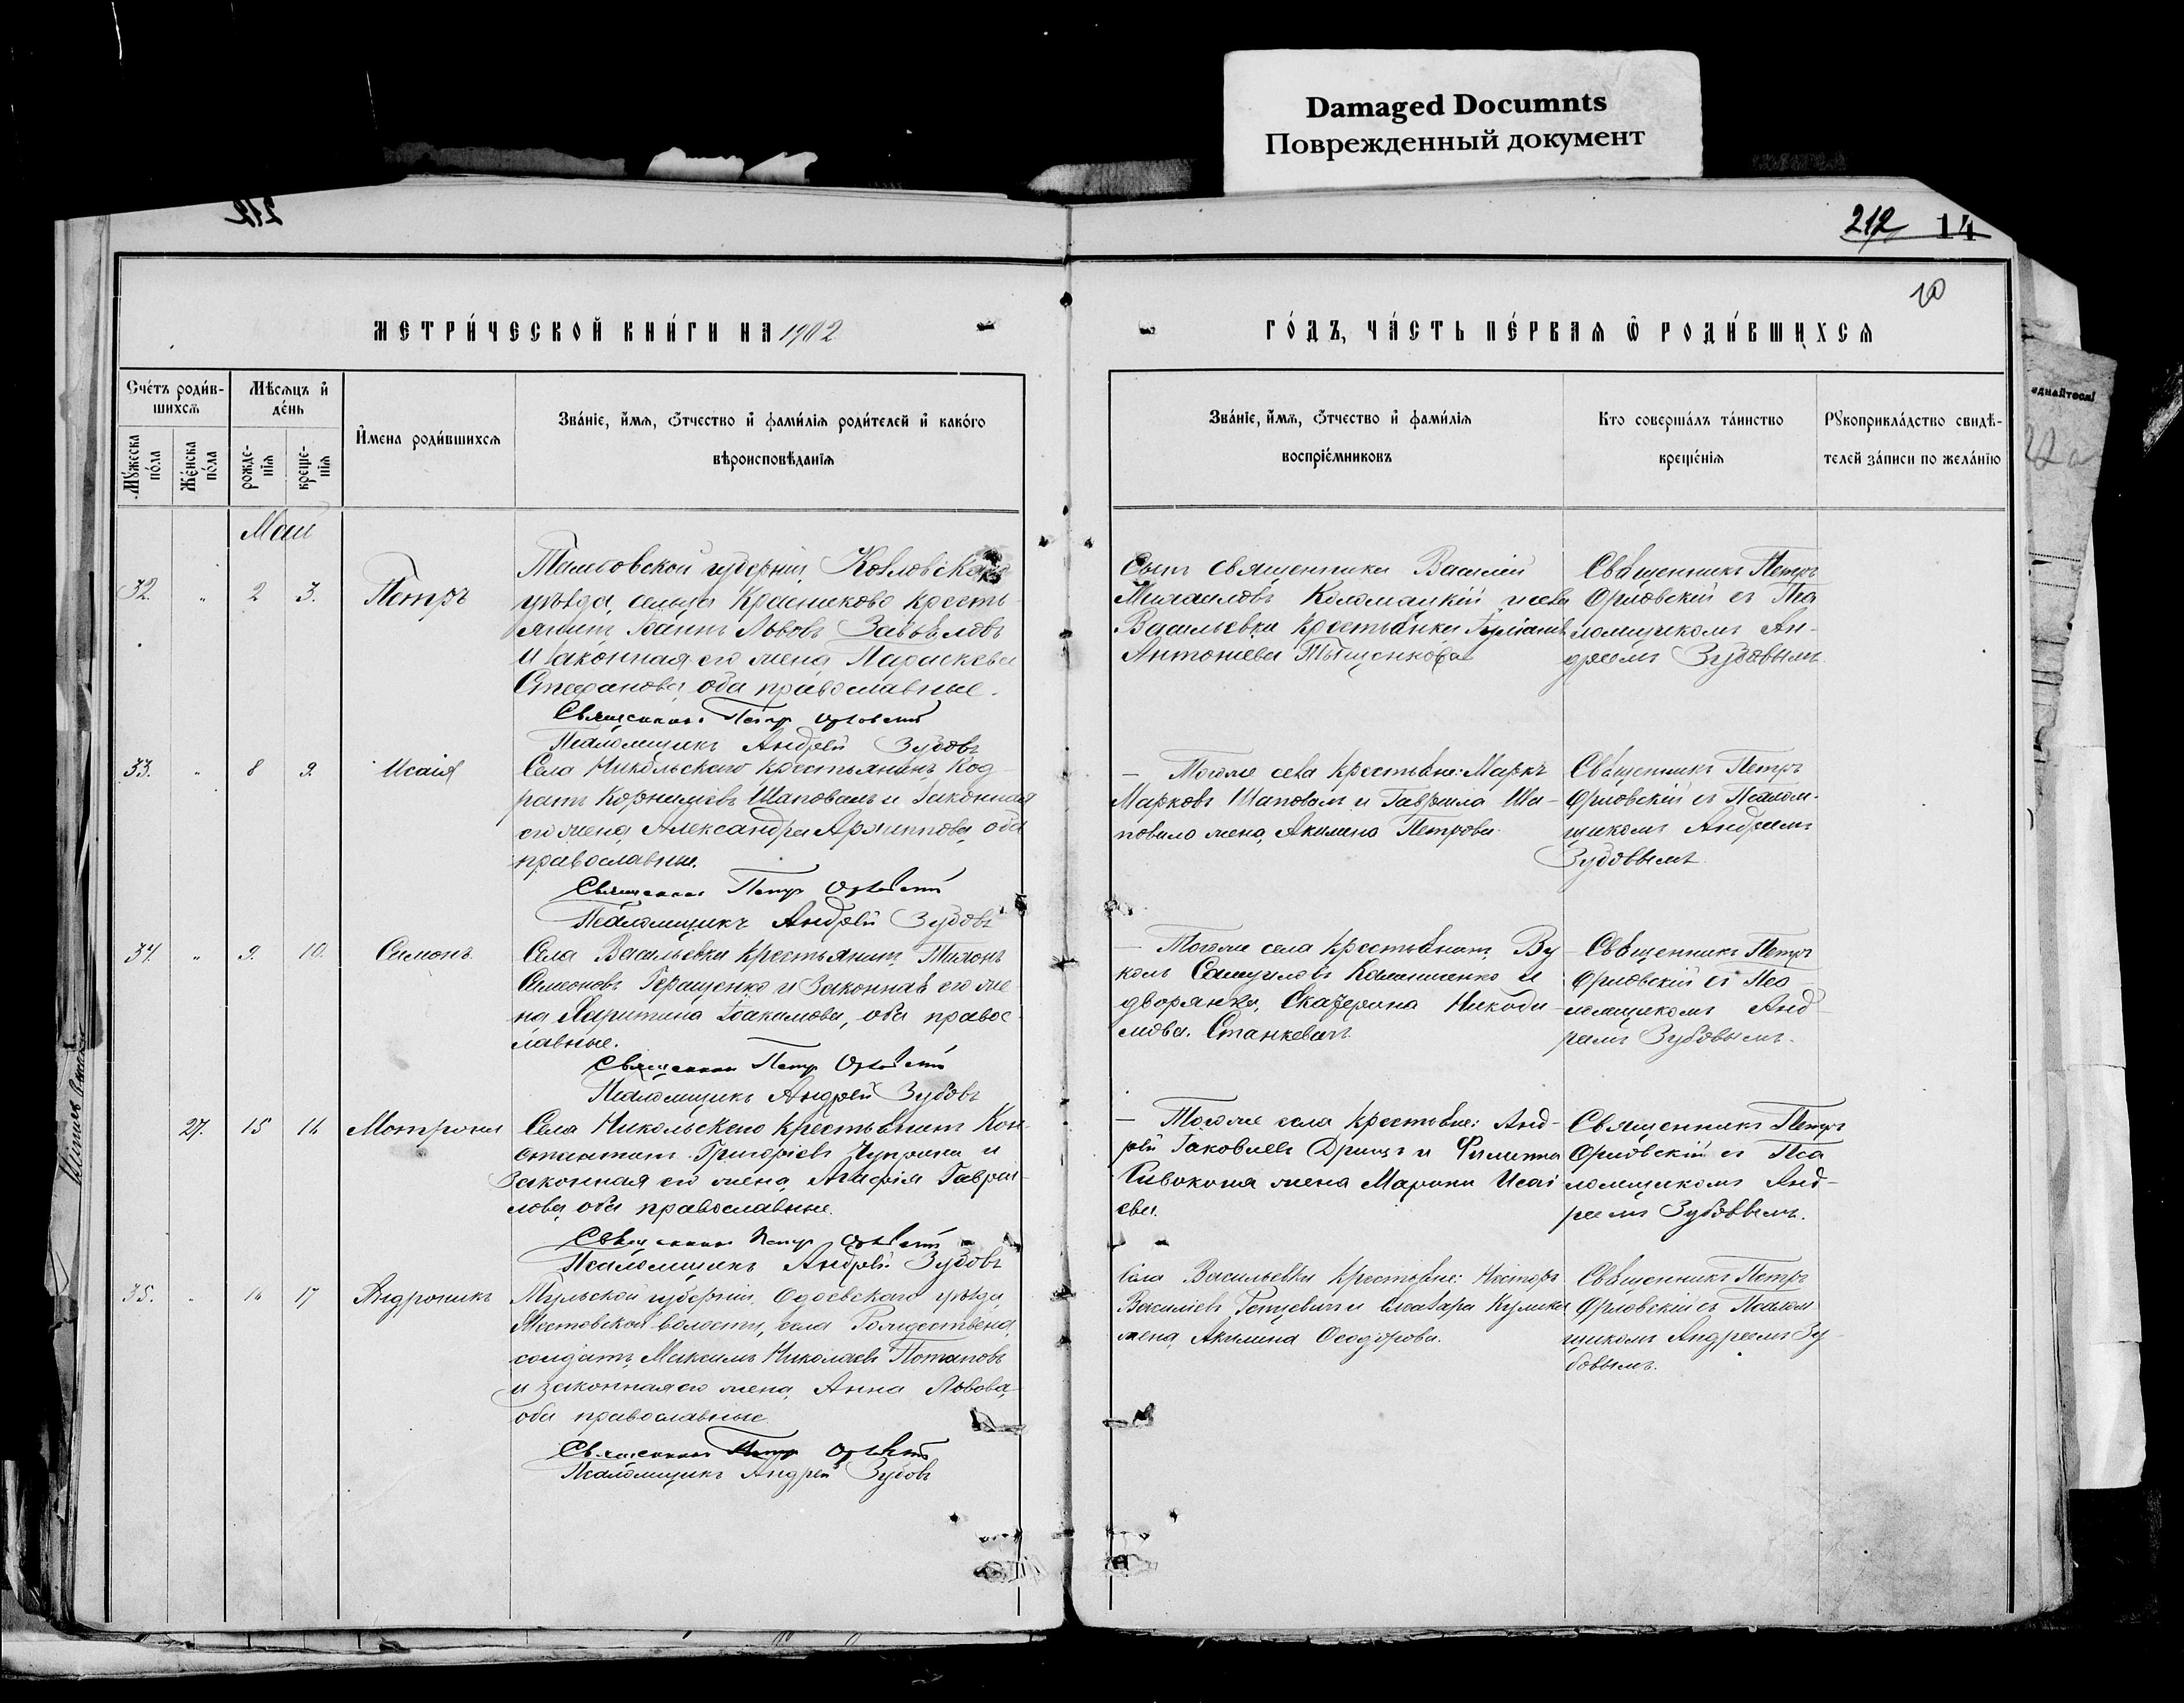 Damaged Documnts
Поврежденный документ
212
212 14
10
МЕТРИ́ЧЕСКОЙ КНИ́ГИ НА 1902
ГО́ДЪ, ЧА́СТЬ ПЕ́РВАѦ Ѡ РОДИ́ВШИХСѦ
Сче́тъ роди́в-
шихсѧ
Мѣ́сѧцъ и҆
де́нь
Му́жеска
по́ла
Же́нска
по́ла
рожде-
нїѧ
креще-
нїѧ
И҆мена роди́вшихсѧ
Зва́нїе, и҆́мѧ, ѻ҆́тчество и҆ фами́лїѧ роди́телей и҆ како́го
вѣроисповѣ́данїѧ
Зва́нїе, и҆́мѧ, ѻ҆́тчество и҆ фами́лїѧ
воспрїе́мниковъ
Кто соверша́лъ та́инство
креще́нїѧ
Рꙋкоприкла́дство свидѣ́-
телей за́писи по жела́нїю
Май
32. " 2 3. Петръ
Тамбовской губерніи, Козловскаго
уѣзда, сельца Красникова кресть-
янинъ Іоаннъ Львовъ Завьяловъ
и законная его жена Параскева
Стефанова, оба православные.
Священникъ Петр Орловскій
Псаломщикъ Андрей Зубовъ
Сынъ священника Василій
Михаиловъ Коломацкій и села
Васильевки крестьянка
Антониева
Священникъ Петръ
Орловскій съ Пса
ломщикомъ Ан-
дреемъ Зубовымъ.
33. " 8 9. Исаія
Села Никольскаго крестьянинъ Код-
ратъ Корниліевъ Шаповалъ и законная
его жена, Александра Архиппова, оба
православные.
Священникъ Петр Орловскій
Псаломщикъ Андрей Зубовъ
— Тогоже села крестьяне: Маркъ
Марковъ Шаповалъ и Гавриила Ша-
повала жена, Акилина Петрова.
Священникъ Петръ
Орловскій съ Псалом-
щикомъ Андреемъ
Зубовымъ.
34. " 9. 10. Симонъ.
Села Васильевки крестьянинъ, Тихонъ
Симеоновъ Геращенко и законная его же
на Харитина Іоакимова, оба правос-
лавные.
Священникъ Петр Орловскій
Псаломщикъ Андрей Зубовъ
— Тогоже села крестьянинъ, Ву-
колъ Самуиловъ и
дворянка, Екатерина Никоди-
мова Станкевичъ.
Священникъ Петръ
Орловскій съ Пса-
ломщикомъ Анд-
реемъ Зубовымъ.
27. 15 16 Матрона
Села Никольскаго крестьянинъ Кон-
стантинъ Григоріевъ Чуприна и
законная его жена, Агафія Гаврии-
лова, оба православные.
Священникъ Петр Орловскій
Псаломщикъ Андрей Зубовъ
— Тогоже села крестьяне: Анд-
рей Іаковлевъ и Филиппа
жена Марина Исаі-
ева.
Священникъ Петръ
Орловскій съ Пса
ломщикомъ Анд-
реемъ Зубовымъ.
35. " 16 17 Андроникъ
Тульской губерніи, Одоевскаго уѣзда,
Мостовской волости, села Рождествена,
солдатъ, Максимъ Николаевъ Потаповъ
и законная его жена, Анна Львова,
оба православные.
Священникъ Петр Орловскій
Псаломщикъ Андрей Зубовъ
Села Васильевки крестьяне: Несторъ
Василіевъ и Кулика
жена, Акилина Ѳеодорова.
Священникъ Петръ
Орловскій съ Псалом
щикомъ Андреемъ Зу-
бовымъ.